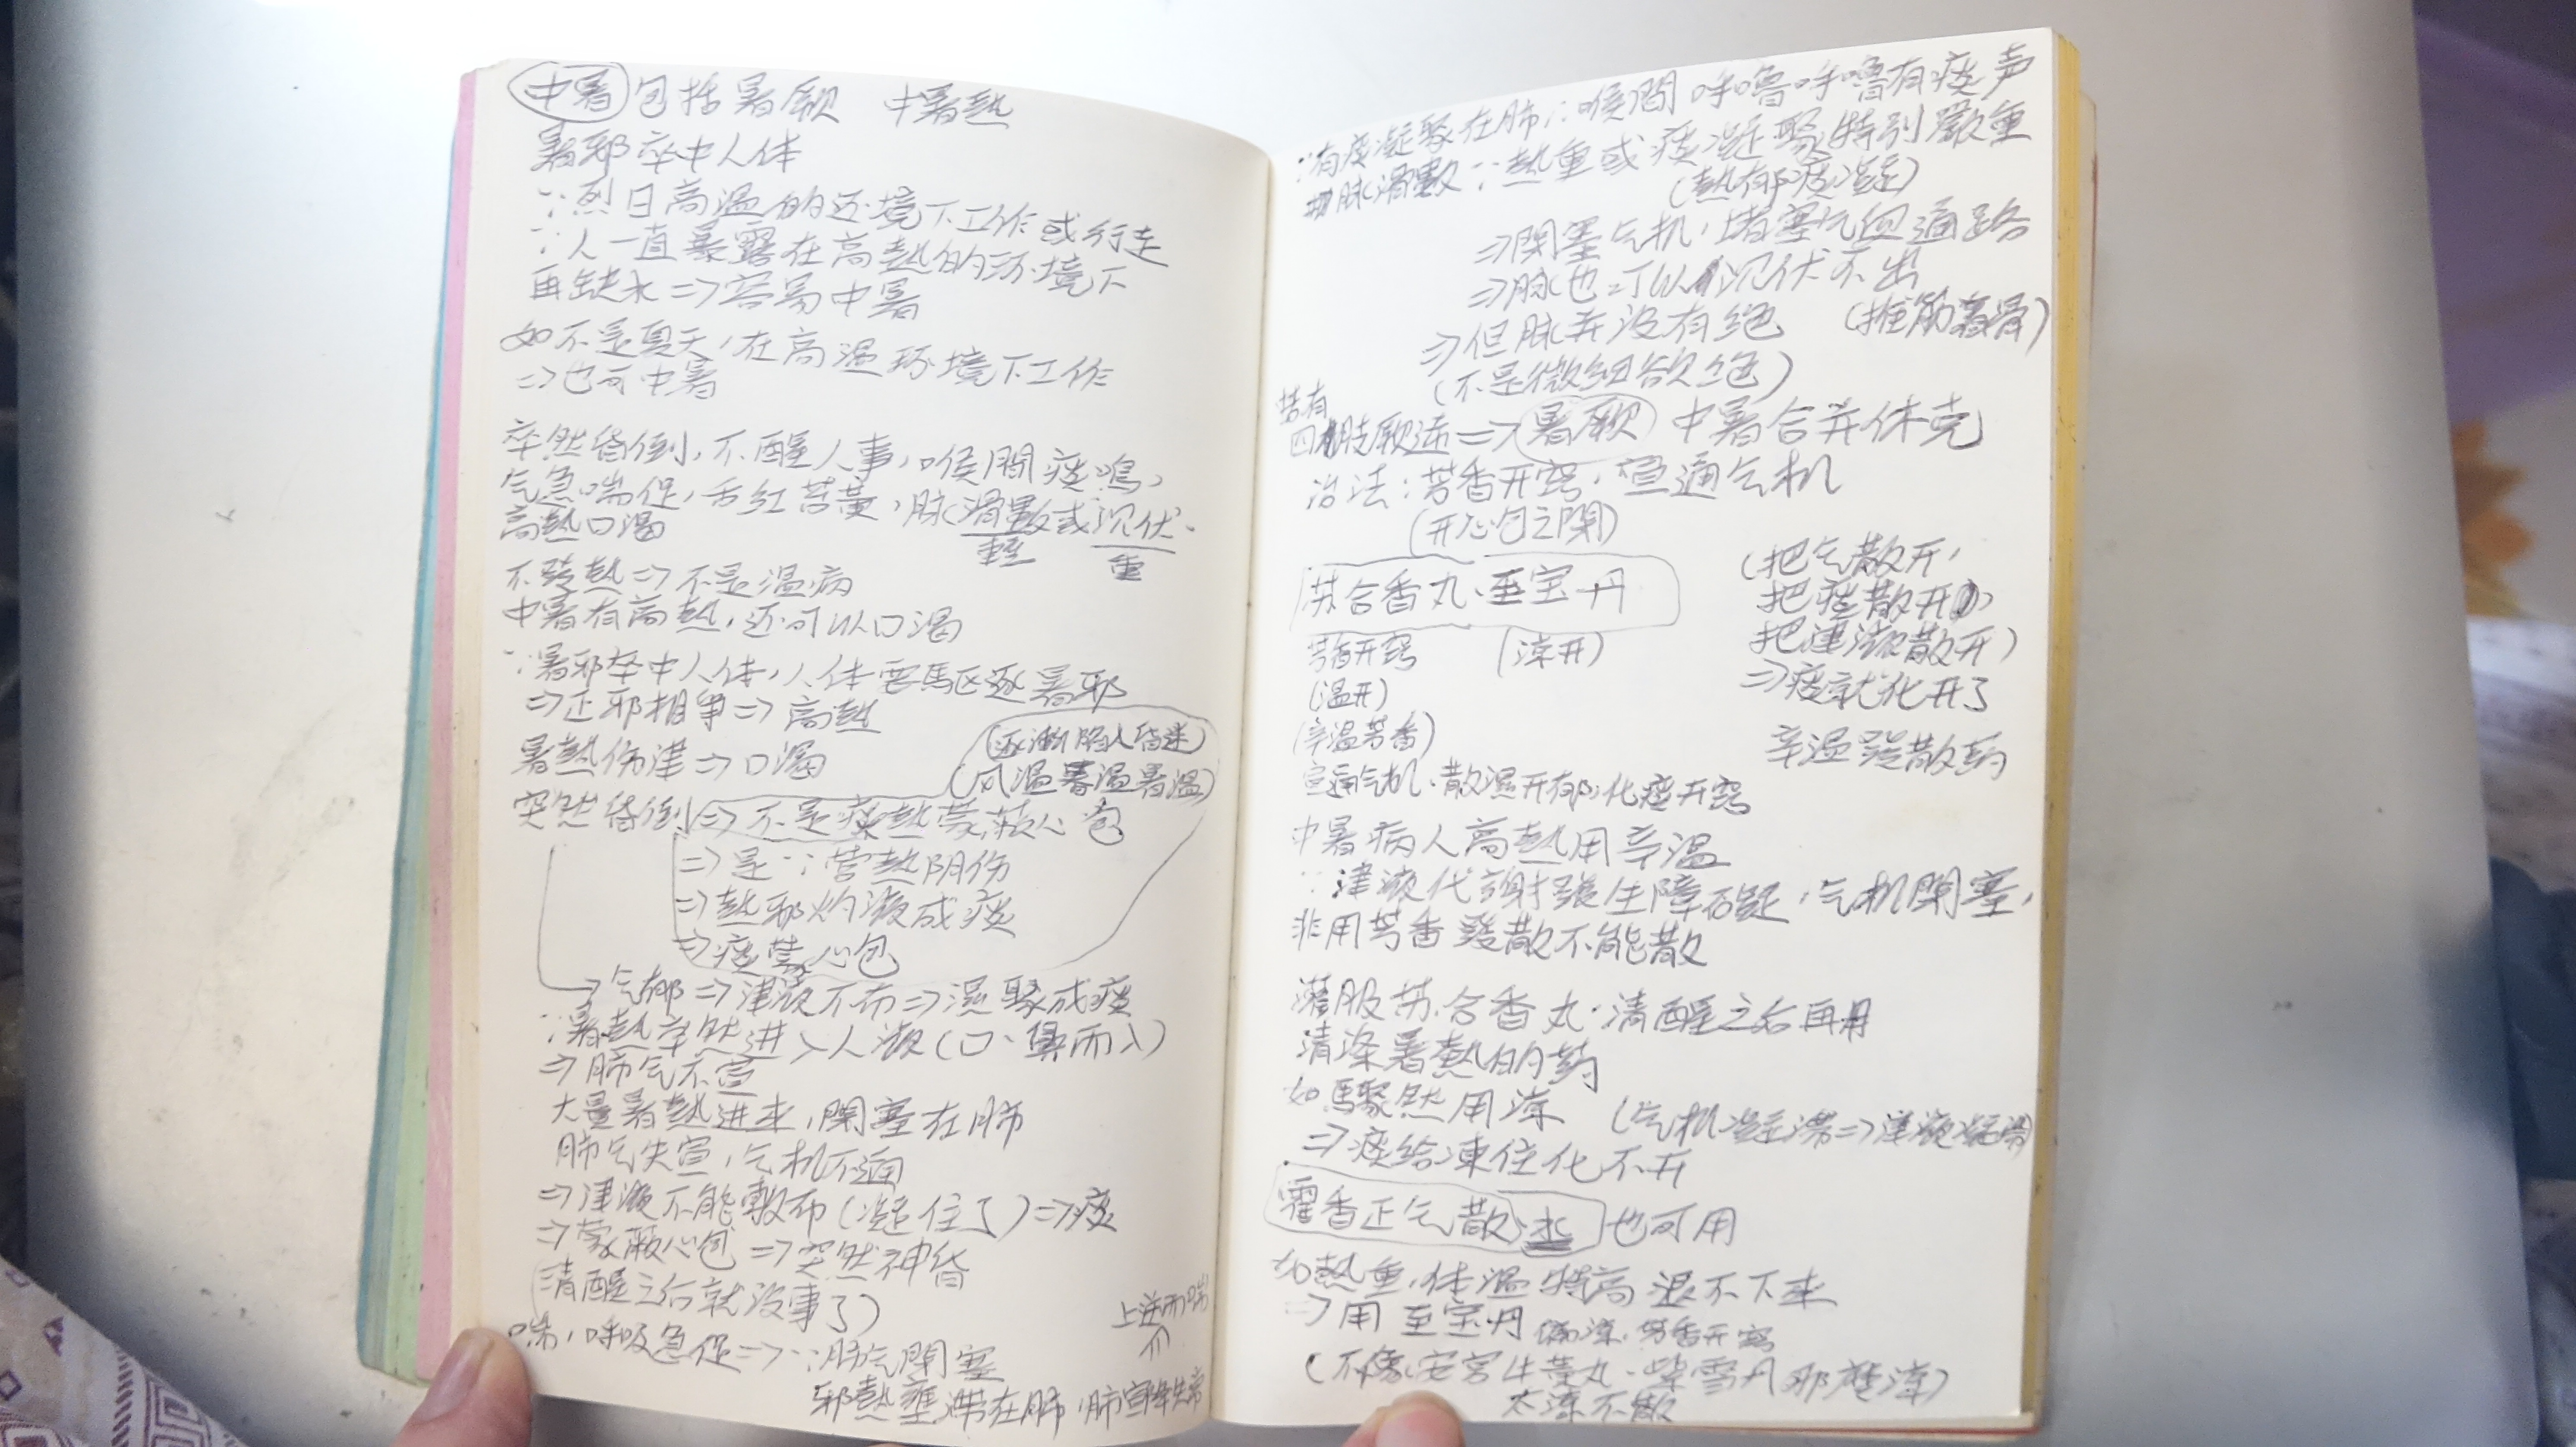 中暑 包括暑厥 中暑熱
暑邪卒中人体
∵烈日高温的环境下工作或行走
∵人一直暴露在高熱的环境下
再缺水⇒容易中暑
如不是夏天,在高温环境下工作
⇒也可中暑
卒然昏倒,不醒人事,喉間痰鳴,
气急喘促,舌红苔黄,脉滑數或沉伏.
軽 重
高熱口渴
不發熱⇒不是温病
中暑有高熱,还可以口渴
∵暑邪卒中人体,人体要驅逐暑邪
⇒正邪相爭⇒高熱
暑熱伤津⇒口渴
(逐漸陷入昏迷)
(风温春温暑温)
突然昏倒⇒不是痰熱蒙蔽心包
⇒是∵营熱阴伤
⇒熱邪灼液成痰
⇒痰蒙心包
→气郁⇒津液不布⇒濕聚成痰
∵暑熱卒然进入人液(口、鼻而入)
⇒肺气不宣
大量暑熱进来,閉塞在肺
肺气失宣,气机不通
⇒津液不能敷布(凝住了)⇒痰
⇒蒙蔽心包⇒突然神昏
(清醒之后就没事了)
上逆而喘
⇑
喘,呼吸急促⇒∵肺气閉塞
邪熱壅滞在肺,肺宣降失常
∵有痰凝聚在肺∴喉間呼嚕呼嚕有痰声
脉滑數∵熱重或痰凝聚特別嚴重
(熱郁痰凝)
⇒閉塞气机,堵塞气血通路
⇒脉也可以沉伏不出
(推筋着骨)
⇒但脉并没有绝
(不是微细欲绝)
若有
四肢厥逆⇒暑厥 中暑合并休克
治法:芳香开窍,宣通气机
(开心包之閉)
苏合香丸、至宝丹
(把气散开,
把痰散开,
把津液散开)
⇒痰就化开了
芳香开窍 (涼开)
(温开)
(辛温芳香)
辛温發散药
宣通气机、散濕开郁,化痰开窍
中暑病人高熱用辛温
∵津液代謝發生障礙,气机閉塞,
非用芳香發散不能散
灌服苏合香丸.清醒之后再用
清涤暑熱的药
如驟然用涼 (气机凝滞⇒津液凝滞)
⇒痰给凍住化不开
霍香正气散、水 也可用
如熱重,体温特高退不下来
⇒用至宝丹 偏涼,芳香开窍
(不像安宮牛黄丸、紫雪丹那麼涼)
太涼不散